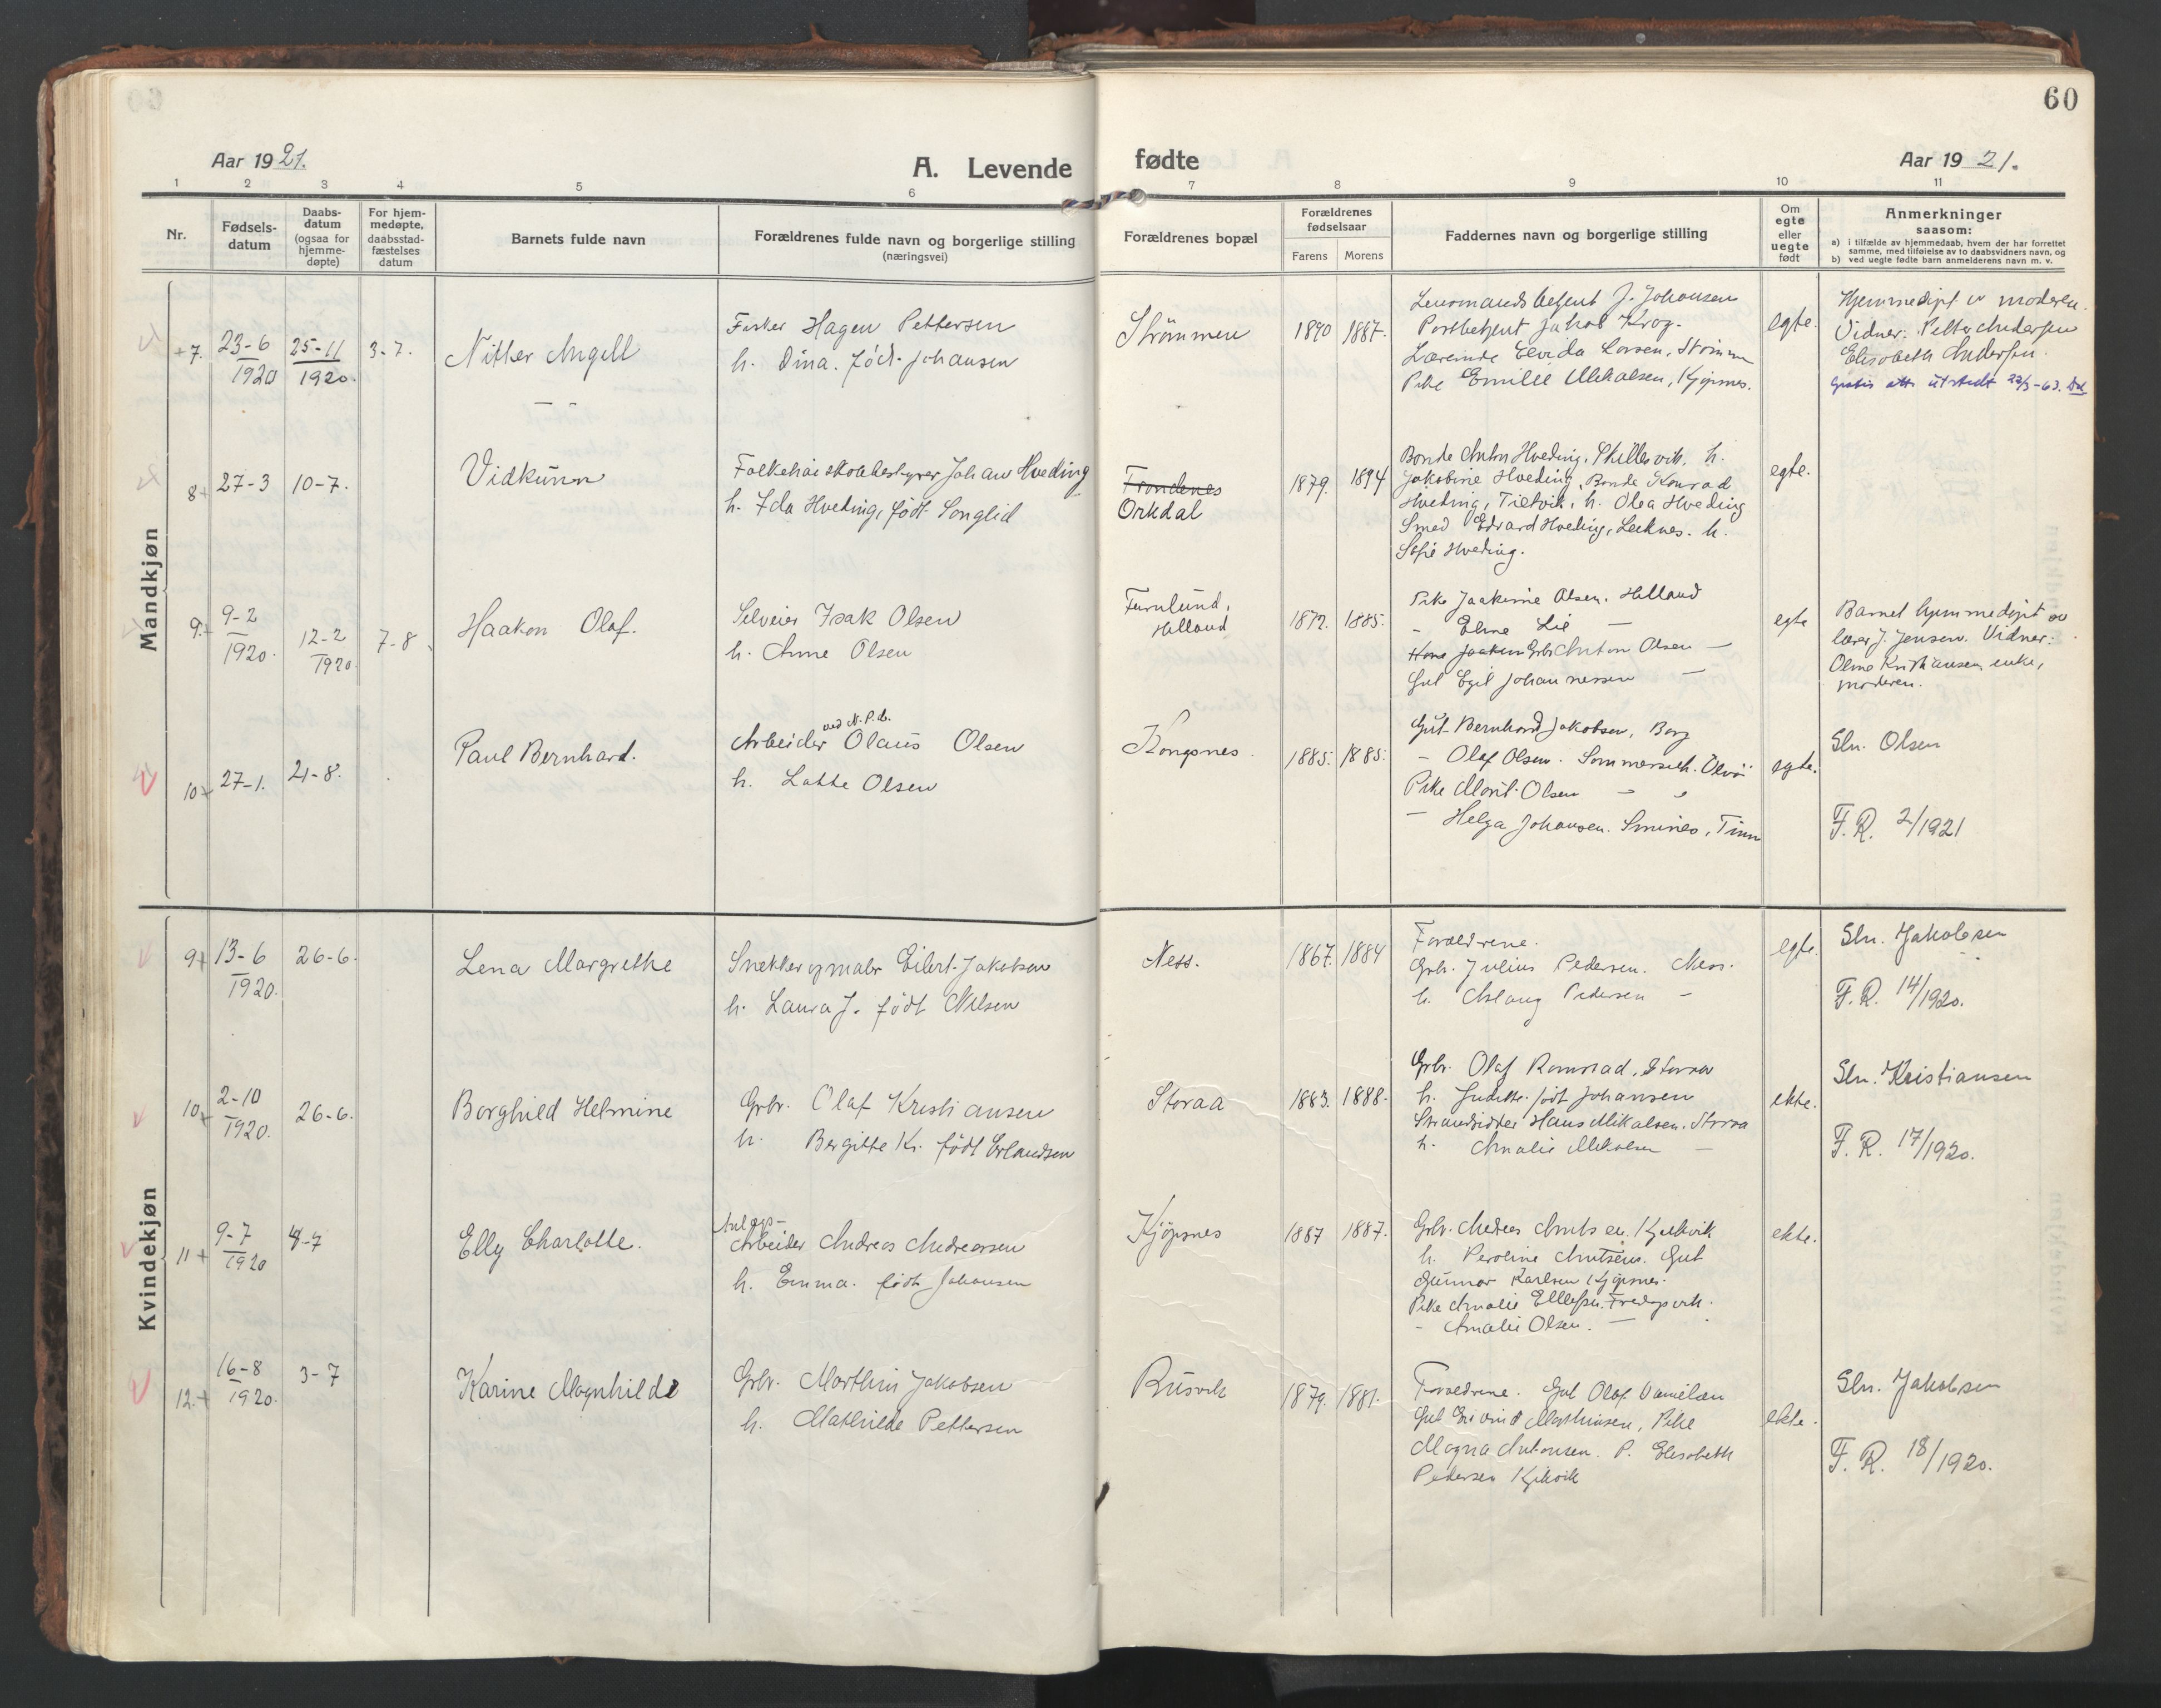 60
Aar 1921.
A. Levende fødte
Aar 1921.
1 2 3 4 5 6 7 8 9 10 11
Nr.
Fødselsdatum
Daabsdatum (ogsaa for hjemmedøpte)
For hjemmedøpte, daabsstadfæstelses datum
Barnets fulde navn
Forældrenes fulde navn og borgerlige stilling (næringsvei)
Forældrenes bopæl
Forældrenes fødselsaar
Farens Morens
Faddernes navn og borgerlige stilling
Om egte eller uegte født
Anmerkninger saasom:
a) i tilfælde av hjemmedaab, hvem der har forrettet samme, med tilføielse av to daabsvidners navn, og
b) ved uegte fødte barn anmelderens navn m. v.
Mandkjøn
7. 23-6 1920 25-11 1920. 3-7.
Angell
Fisker Hagen Pettersen
h. Dina. född. Johansen
Strömmen
1890 1887.
Lensmandsbetjent J. Johansen
Postbetjent Jakob Krog.
Lærerinde Elvida Larsen, Strömmen
Pike Emilie Mikalsen, Kjöpsnes.
egte.
Hjemmedöpt av moderen.
Vidner: Petter Andersen
Elisabeth Andersen.
Gratis att. utstedt 22/3-63.
8 27-3 10-7.
Vidkunn
Folkehöiskolebestyrer Johan Hveding
h. Ida Hveding, född Songlid
Trondenes
Orkdal
1879. 1894
Bonde Anton Hveding, h.
Jakobine Hveding, Bonde Konrad
Hveding, h. Olea Hveding
Smed Edvard Hveding, h.
Sofie Hveding.
egte.
9. 9-2 1920. 12-2 1920 7-8
Haakon Olaf.
Isak Olsen
h. Anne Olsen
Furulund, Helland
1872. 1885.
Pike Joakime Olsen. Helland
- Eline Lie -
Anton Olsen -
Gut Egil Johannessen -
egte
Barnet hjemmedöpt av
lærer J. Jensen. Vidner:
Kristiansen, enke,
moderen.
10 27-1. 21-8.
Paul Bernhard.
Arbeider ved N.P.C. Olaus Olsen
h. Lotte Olsen
Kongsnes.
1885. 1885.
Gut Bernhard Jakobsen, Borg
- Olaf Olsen.
Pike Marit Olsen - "
- Helga Johansen.
egte.
Sln. Olsen
F. R. 2/1921
Kvindekjøn
9 13-6 1920. 26-6.
Lena Margrethe
Snekker og maler Eilert Jakobsen
h. Laura J. född Nilsen
Ness.
1867. 1884
Forældrene.
Grbr. Julius Pedersen. Ness.
h. Aslaug Pedersen -
egte.
Sln. Jakobsen
F. R. 14/1920.
10 2-10 1920. 26-6.
Borghild Helmine
Grbr. Olaf Kristiansen
h. Bergitte Kr. född Erlandsen
Storaa
1883. 1888.
Grbr. Olaf Romstad, Storaa
h. född Johansen
Strandsidder Hans Mikalsen. Storaa
h. Amalie Mikalsen -
ekte.
Sln. Kristiansen
F. R. 17/1920.
11 9-7 1920 4-7
Elly Charlotte.
Arbeider Andreas Andreassen
h. Emma. född Johansen
Kjöpsnes
1887 1887.
h. Peroline Gut
Gunnar Karlsen Kjöpsnes.
Pike Amalie
- Amalie Olsen. -
ekte.
12. 16-8 1920. 3-7
Karine Magnhilde
Grbr. Marthin Jakobsen
h. Mathilde Pettersen
Rusvik
1879. 1881.
Forældrene. Gut Olaf Danielsen
Gut Eivind Mathisen, Pike
Magna Antonsen. P. Elisabeth
Pedersen Kjelvik
ekte.
Sln. Jakobsen
F. R. 18/1920.